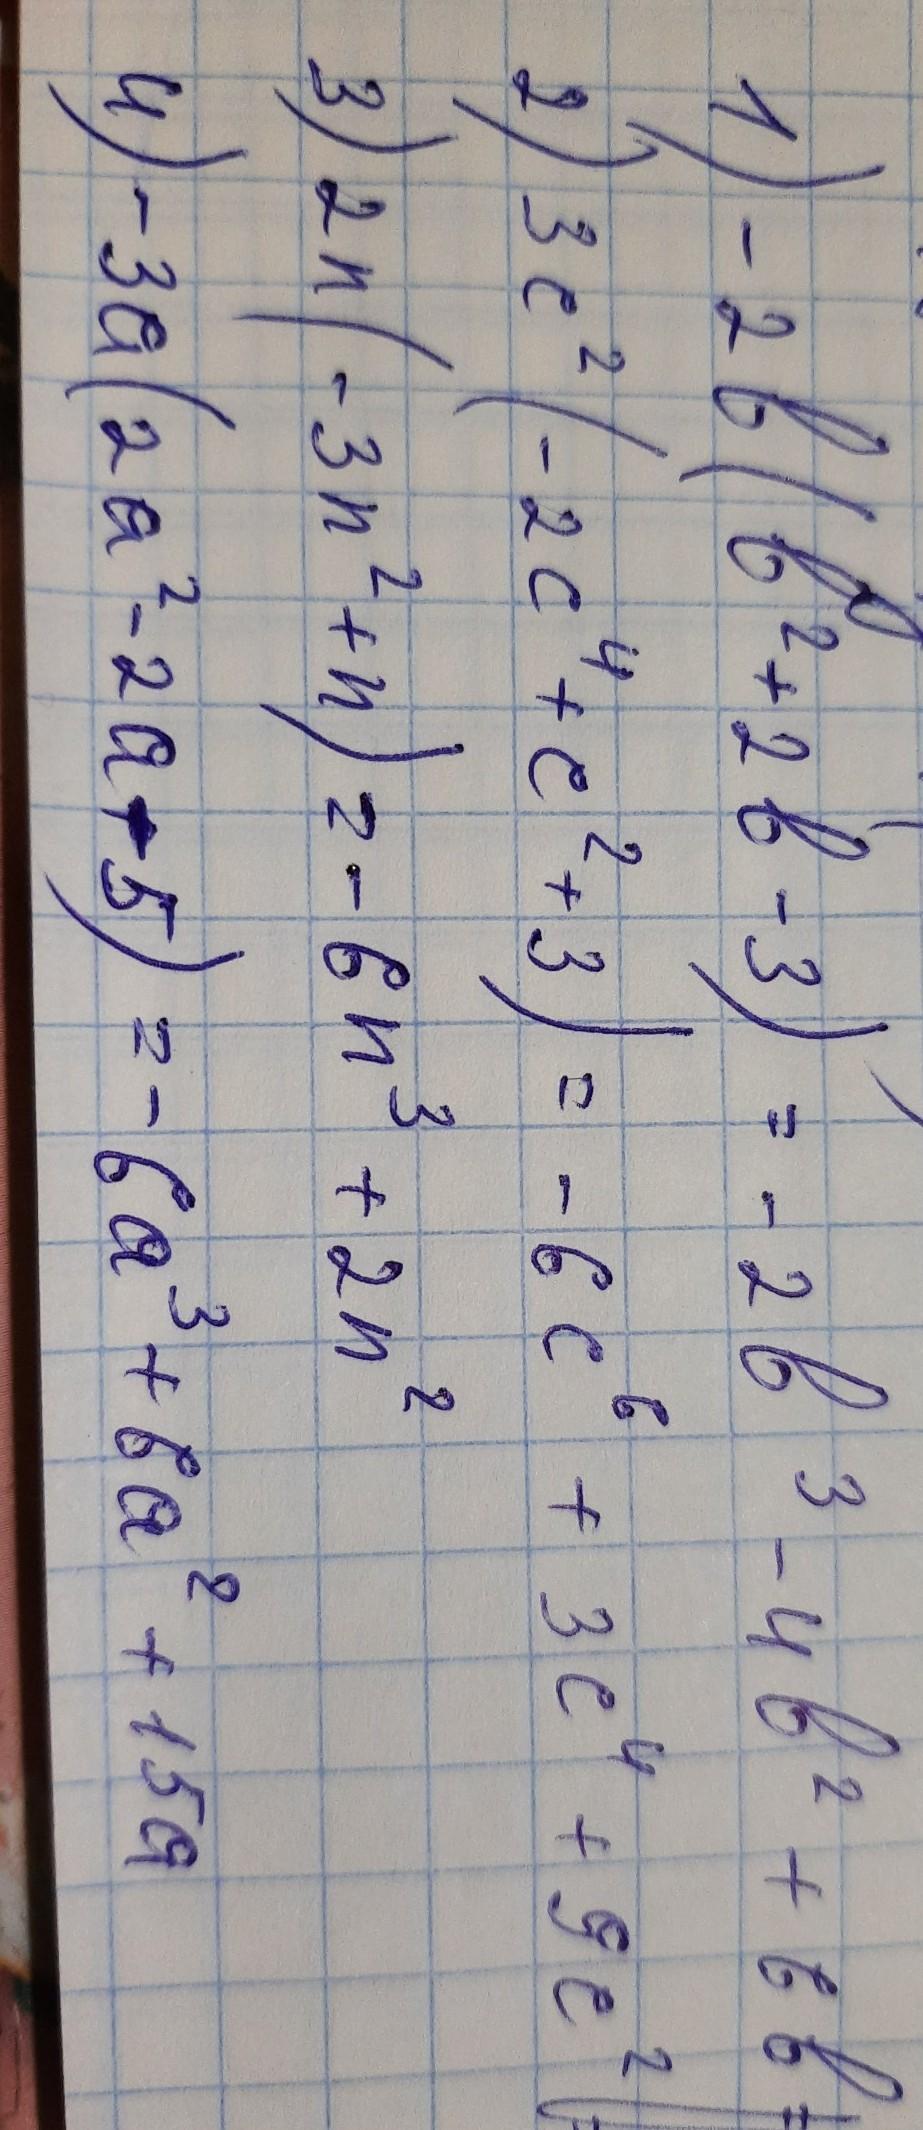 1) -2b(b²+2b-3) = -2b³-4b²+6b=
2) 3c²(-2c⁴+c²+3) = -6c⁶+3c⁴+9c²
3) 2n(-3n²+n) = -6n³+2n²
4) -3a(2a²-2a-5) = -6a³+6a²+15a